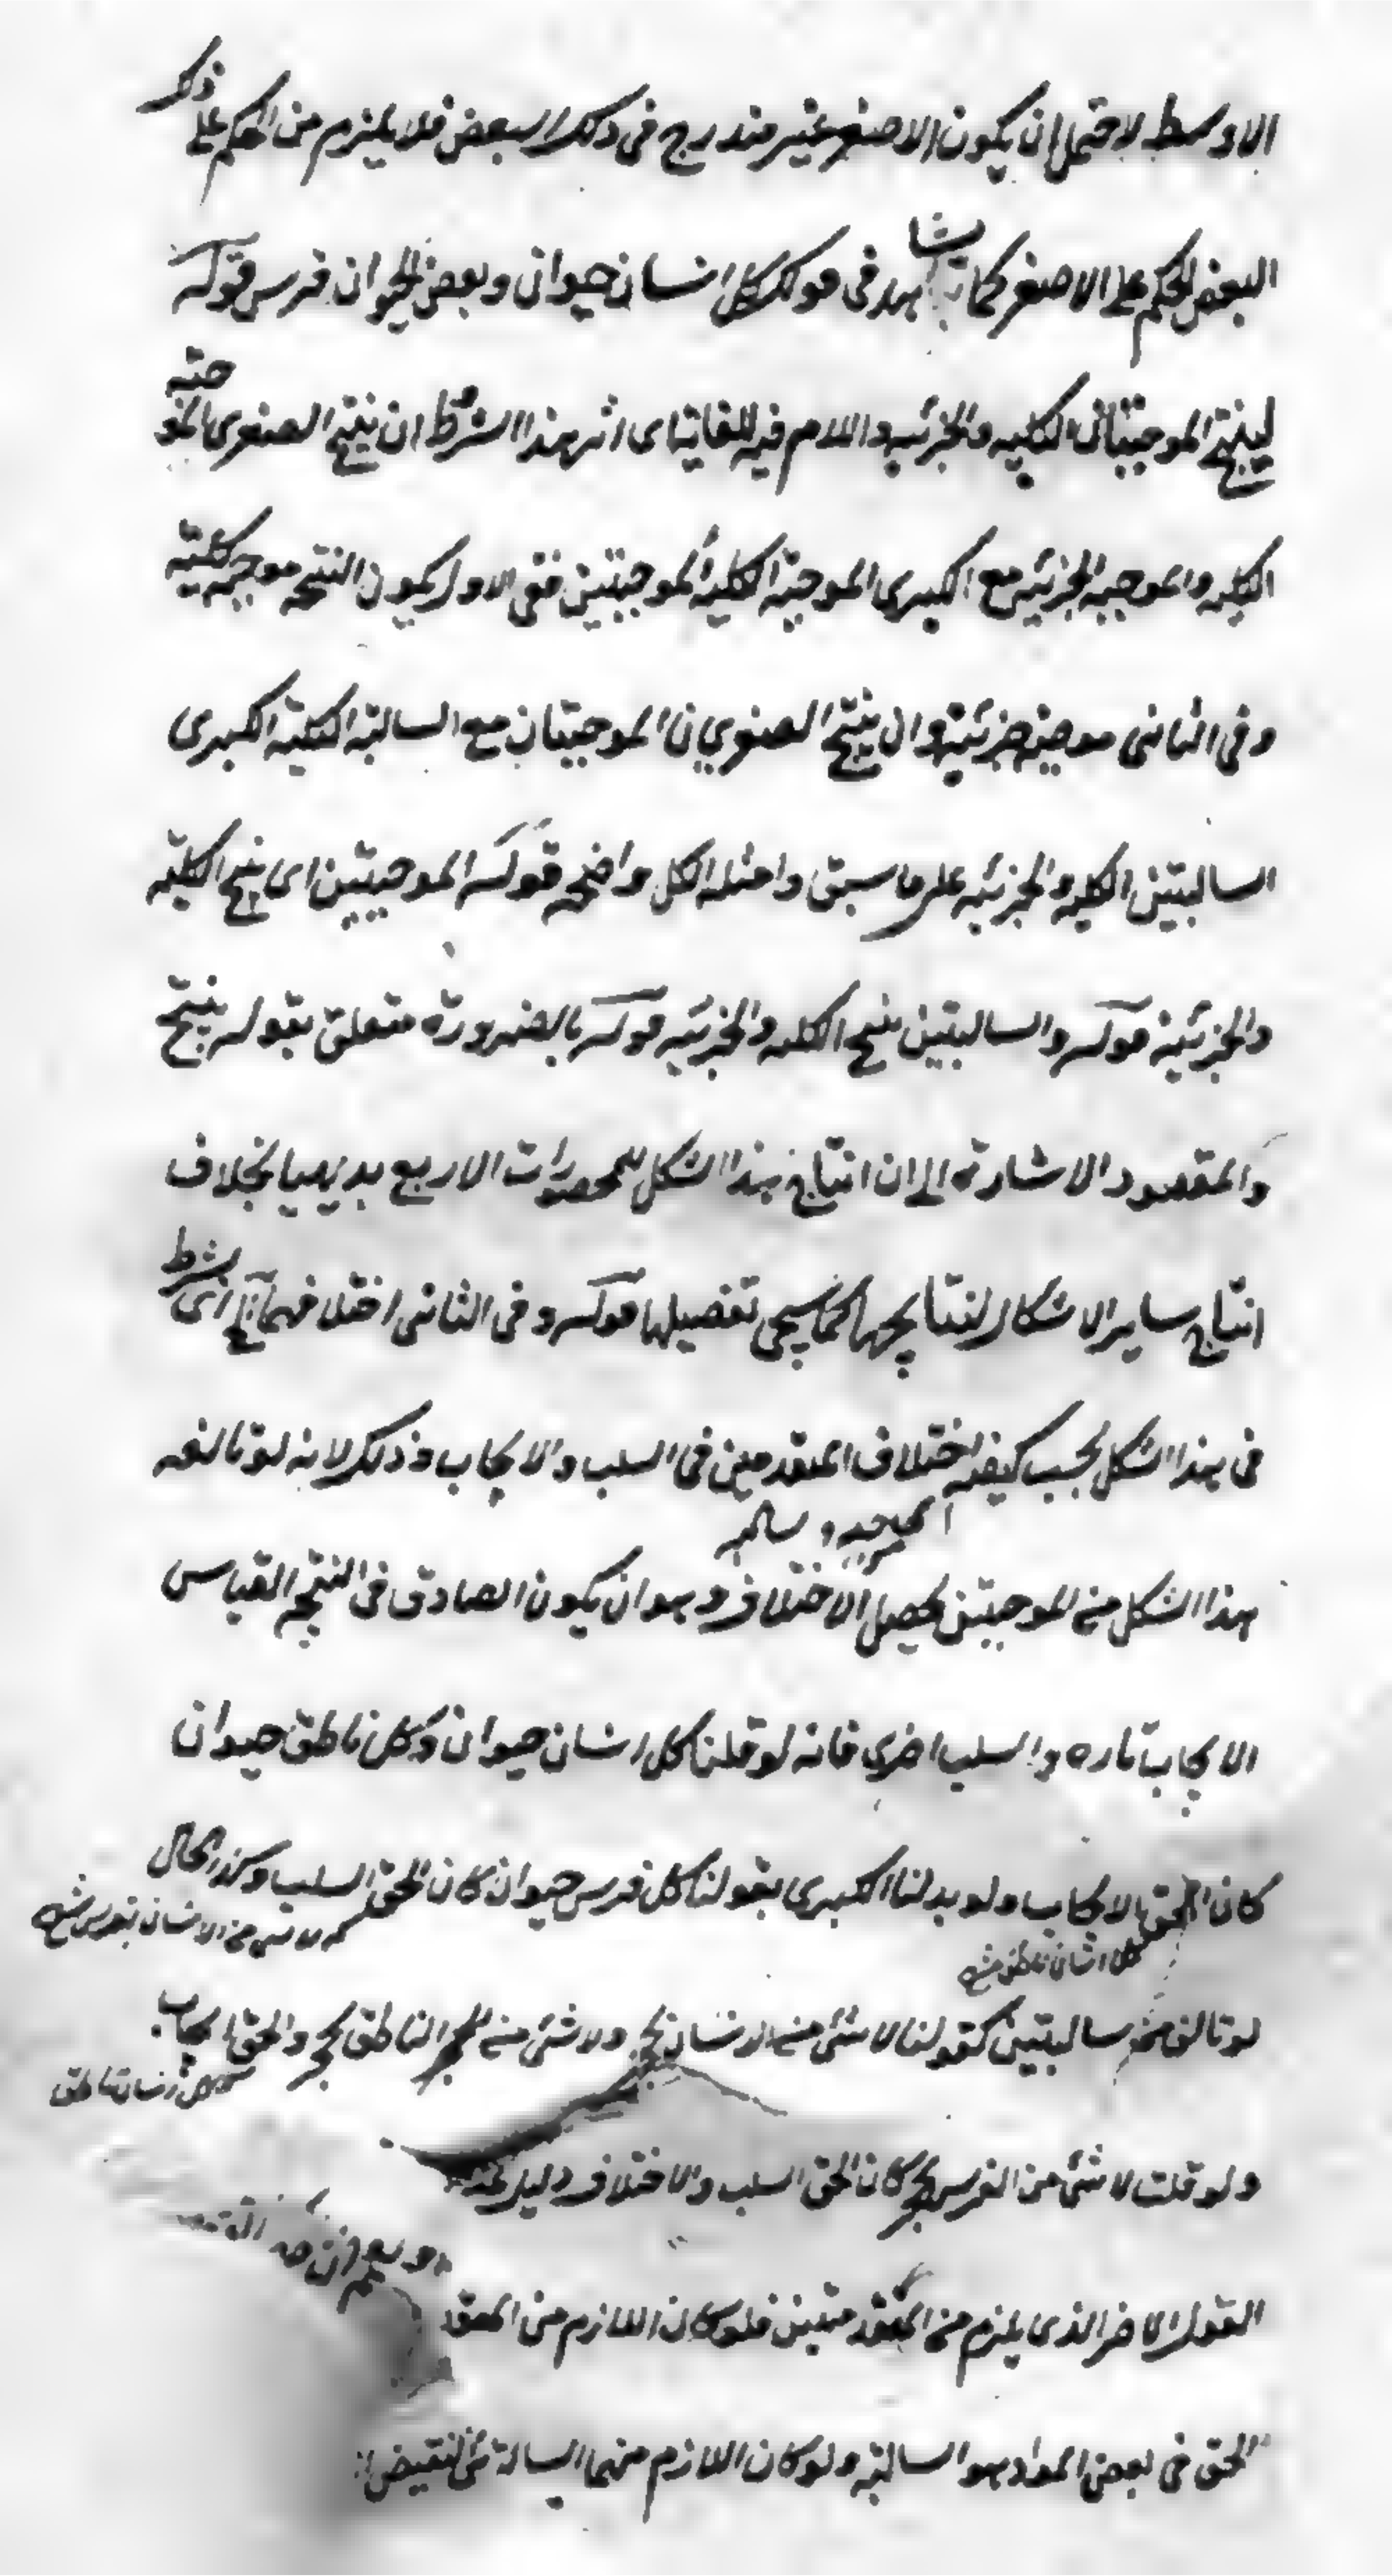 الاوسط لاحتمل ان يكون الاصغر غير مندرج فى ذلك البعض فلا يلزم من الحكم على ذلك
البعض الحكم على الاصغر كما يشاهد فى قولك كل انسان حيوان وبعض الحيوان فرس قوله
لينتج الموجبتان الكليه والجزئيه واللام فيه للغاية اى اثر هذا الشرط ان ينتج الصغرى الموجبه
الكليه والموجبه الجزئيه مع الكبرى الموجبة الكلية الموجبتين ففى الاول يكون النتيجه موجبه كلية
وفى الثانى موجبه جزئية وان ينتج الصغريان الموجبتان مع السالبة الكلية الكبرى
السالبتين الكليه والجزئيه على ما سبق وامثله الكل واضحه قوله الموجبتين اى ينتج الكلية
والجزئية قوله والسالبتين ينتج الكليه والجزئيه قوله بالضرورة متعلق بقوله ينتج
والمقصود الاشارة الى ان انتاج هذا الشكل للمحصورات الاربع بديهيا بخلاف
انتاج ساير الاشكال لنتايجها كما سيجى تفصيلها قوله وفى الثانى اختلافهما آلخ اى يشترط
فى هذا الشكل بحسب كيفيه اختلاف المقدمين فى السلب والايجاب وذلك لانه لو تالف
هذا الشكل من الموجبتين يحصل الاختلاف وهو ان يكون الصادق فى النتيجه القياس
الايجاب تاره والسلب اخرى فانه لو قلنا كل انسان حيوان وكل ناطق حيوان
كان الحق الايجاب ولو بدلنا الكبرى بقولنا كل فرس حيوان كان الحق السلب وكذا الحال
لا شى من الانسان بفرس
كل انسان ناطق
لو تالف من سالبتين كقولنا لا شئ من الانسان بحجر ولا شئ من الناطق بحجر والحق ايجاب
كل انسان ناطق
ولو قلت لا شئ من الفرس بحجر كان الحق السلب والاختلاف دليل
القول الاخر الذى يلزم من المقدمتين فلو كان اللازم من المقد
الحق فى بعض المواد هو السالبة ولو كان اللازم منهما السالبة